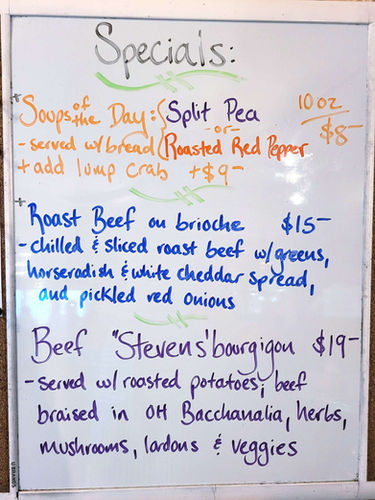 Specials:
Soups of the Day: { Split Pea 10 oz
-or- $8-
- served w/bread Roasted Red Pepper
+ add lump crab +$9-
Roast Beef on brioche $15-
- chilled & sliced roast beef w/greens,
horseradish & white cheddar spread,
and pickled red onions
Beef "Stevens' bourgigon $19-
- served w/ roasted potatoes; beef
braised in OH Bacchanalia, herbs,
mushrooms, lardons & veggies